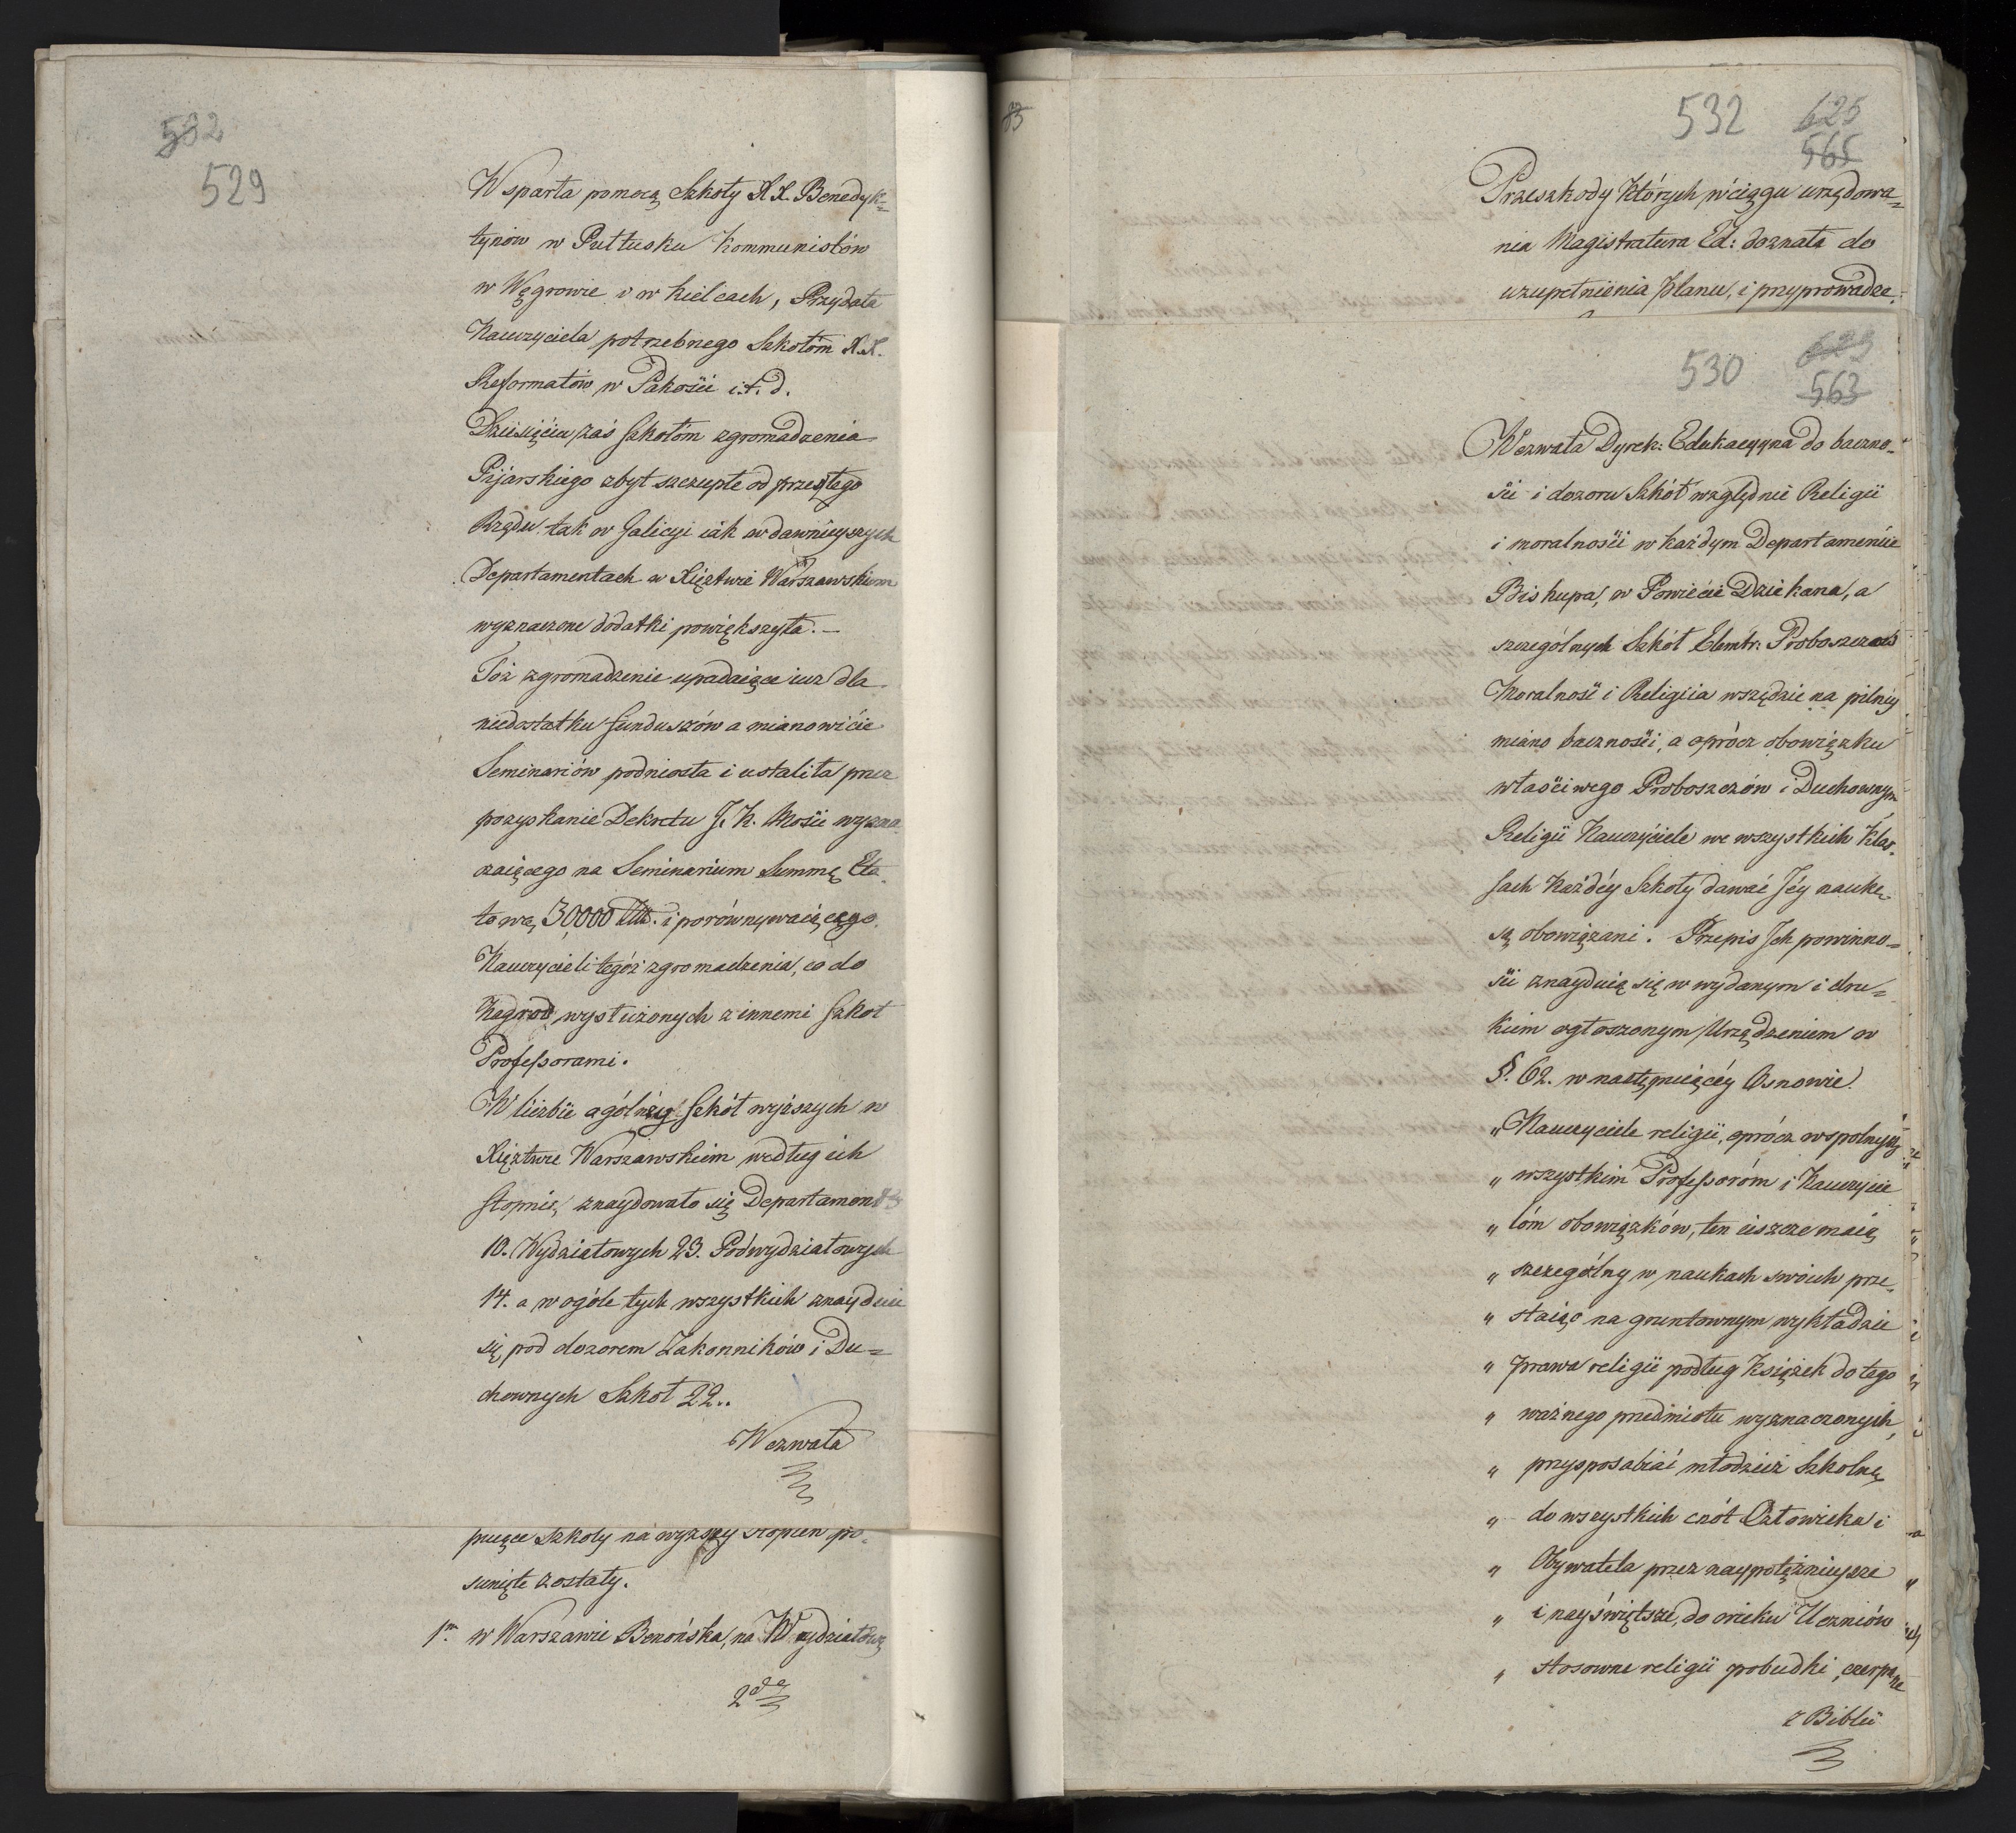 532
529
Wsparła pomocą Szkoły XX. Benedyk=
tynów w Pułtusku Kommunistów
w Węgrowie i w Kielcach, Przydała
Nauczyciela potrzebnego Szkołóm XX.
Reformatów w Pakości i.t.d.
Dziesięciu zaś Szkołóm zgromadzenia
Pijarskiego zbyt szczupłe od przeszłego
Rządu tak w Galicyi iak w dawnieyszych
Departamentach w Xięztwie Warszawskiem
wyznaczone dodatki powiększyła. —
Toż zgromadzenie upadaiące iuż dla
niedostatku funduszów a mianowicie
Seminariów podniosła i ustaliła przez
pozyskanie Dekretu J. K. Mości wyzna
czaiącego na Seminarium Summę Eta
tową 30,000 i porównywaiącego
Nauczycieli tegóż zgromadzenia, co do
Nagród wysłużonych z innemi Szkół
Professorami.
W liczbie ogólnéy Szkół wyższych w
Xięztwie Warszawskiem według ich
stopnia, znaydowało się Departament
10. Wydziałowych 23. Podwydziałowych
14. a w ogóle tych wszystkich znayduie
się pod dozorem Zakonników i Du=
chownych Szkół 22..
Wezwała
puiące Szkoły na wyższy stopień po
sunięte zostały.
1mo w Warszawie Benońska, na Wydziałową
2do
83
532 625
565
Przeszkody których w ciągu urzędowa=
nia Magistratura Ed: doznała do
uzupełnienia planu, i przyprowadze
530 623
563
Wezwała Dyrek: Edukacyyna do baczno=
ści i dozoru Szkół względnie Religii
i moralności w każdym Departamencie
Biskupa, w Powiecie Dziekana, a
szczególnych Szkół Elemtr: Proboszczów
Moralność i Religiia wszędzie na pilney
miano baczności, a oprócz obowiązku
właściwego Proboszczów i Duchownym
Religii Nauczyciele we wszystkich klas=
sach Każdéy Szkoły dawać Jéy naukę
są obowiązani. Przepis Jch powinno=
ści znayduią się w wydanym i dru=
kiem ogłoszonym Urządzeniem w
§. 62. w następuiącéy Osnowie.
„ Nauczyciele religii, oprócz wspolnych
„ wszystkim Professoróm i Nauczycie
„ lóm obowiązków, ten ieszcze maią
„ szczególny w naukach swoich prze=
„ staiąc na gruntownym wykładzie
„ prawa religii podług Książek do tego
„ ważnego przedmiotu wyznaczonych,
„ przysposabiać młodzież Szkolną
„ do wszystkich cnót Człowieka i
„ Obywatela przez naypotężnieysze
„ i nayświętsze, do wieku Uczniów
„ stosowne religii pobudki, czerpane
z Biblii